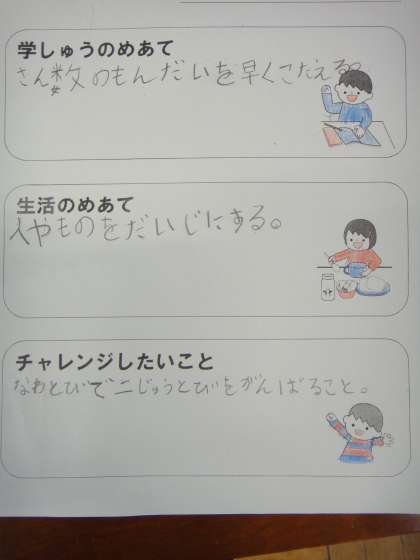 学しゅうのめあて
さん数のもんだいを早くこたえる。
生活のめあて
人やものをだいじにする。
チャレンジしたいこと
なわとびで二じゅうとびをがんばること。